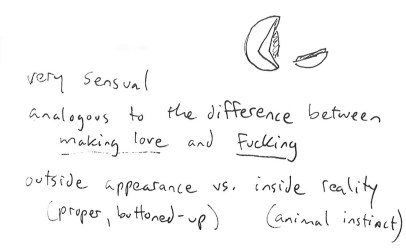 very sensual
analogous to the difference between
making love and Fucking
outside appearance vs. inside reality
(proper, buttoned-up) (animal instinct)